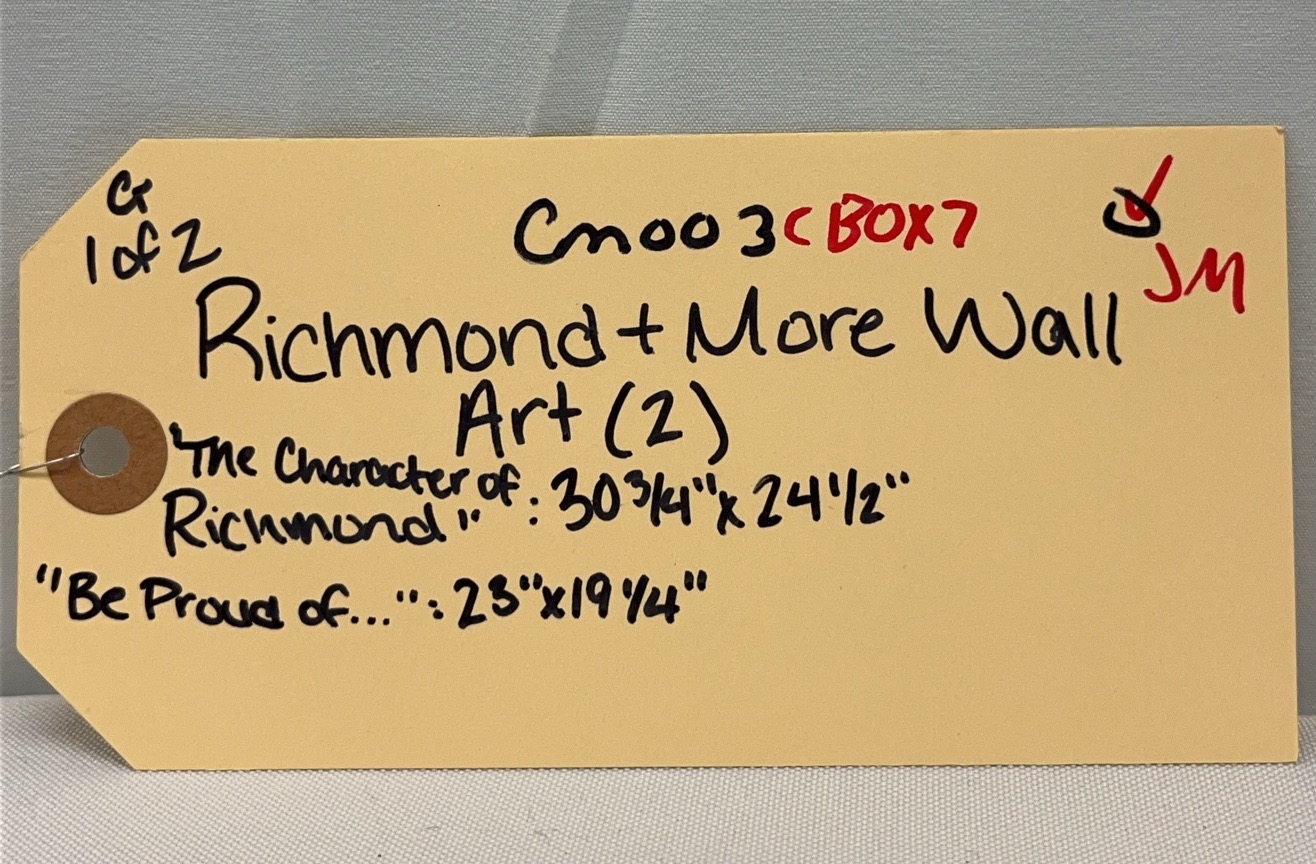 G
1 of 2
Cm003 C BOX7
JM
Richmond + More Wall
Art (2)
"The Character of
Richmond" : 30 3/4" x 24 1/2"
"Be Proud of...": 23" x 19 1/4"